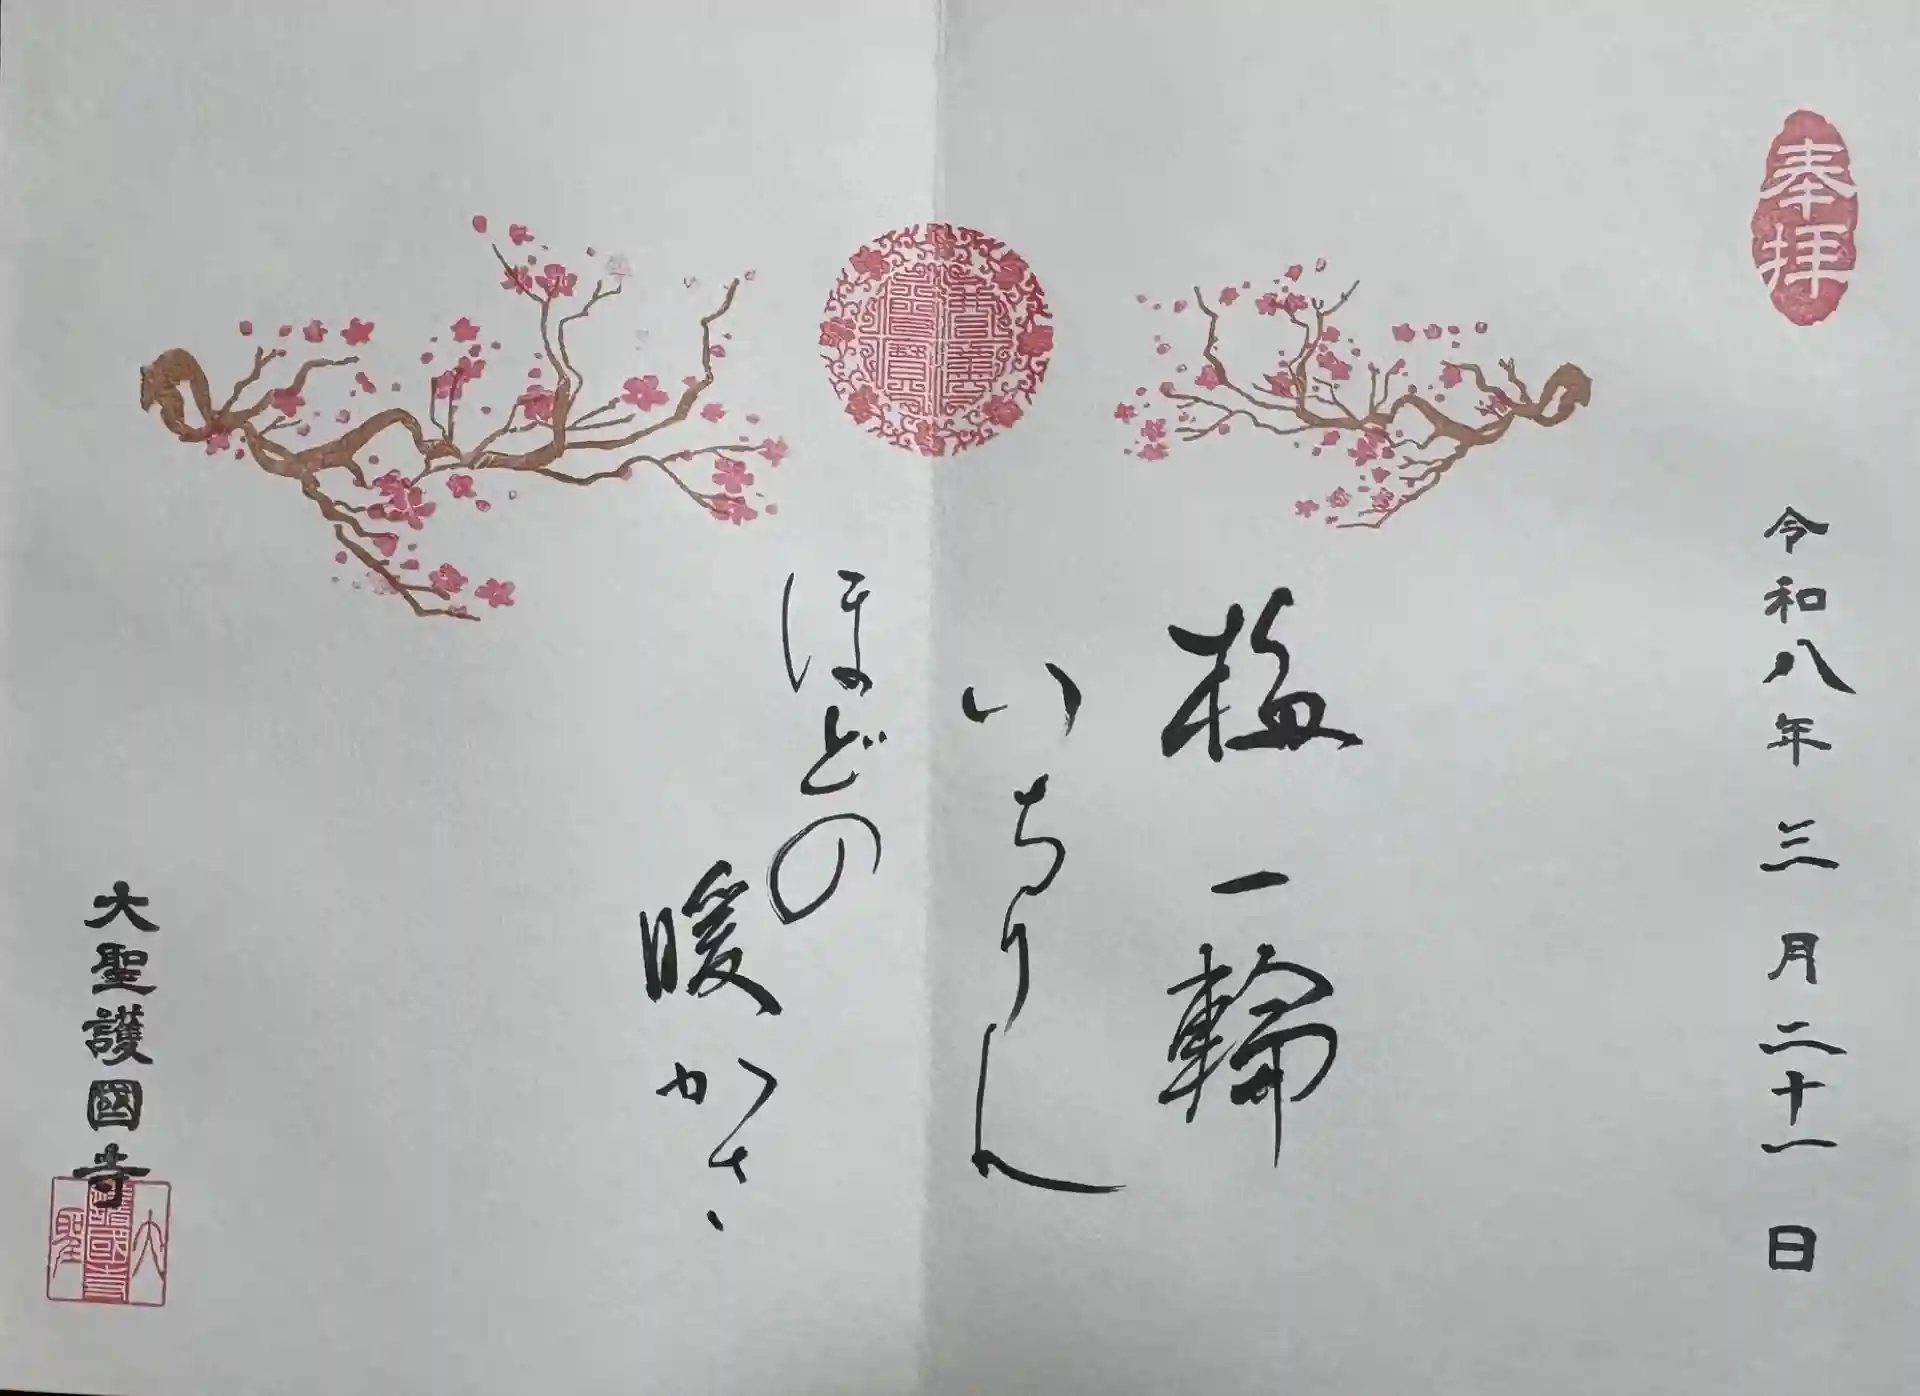 奉拝
令和八年三月二十一日
梅一輪
いちりん
ほどの
暖かさ
大聖護國寺
大聖護國寺